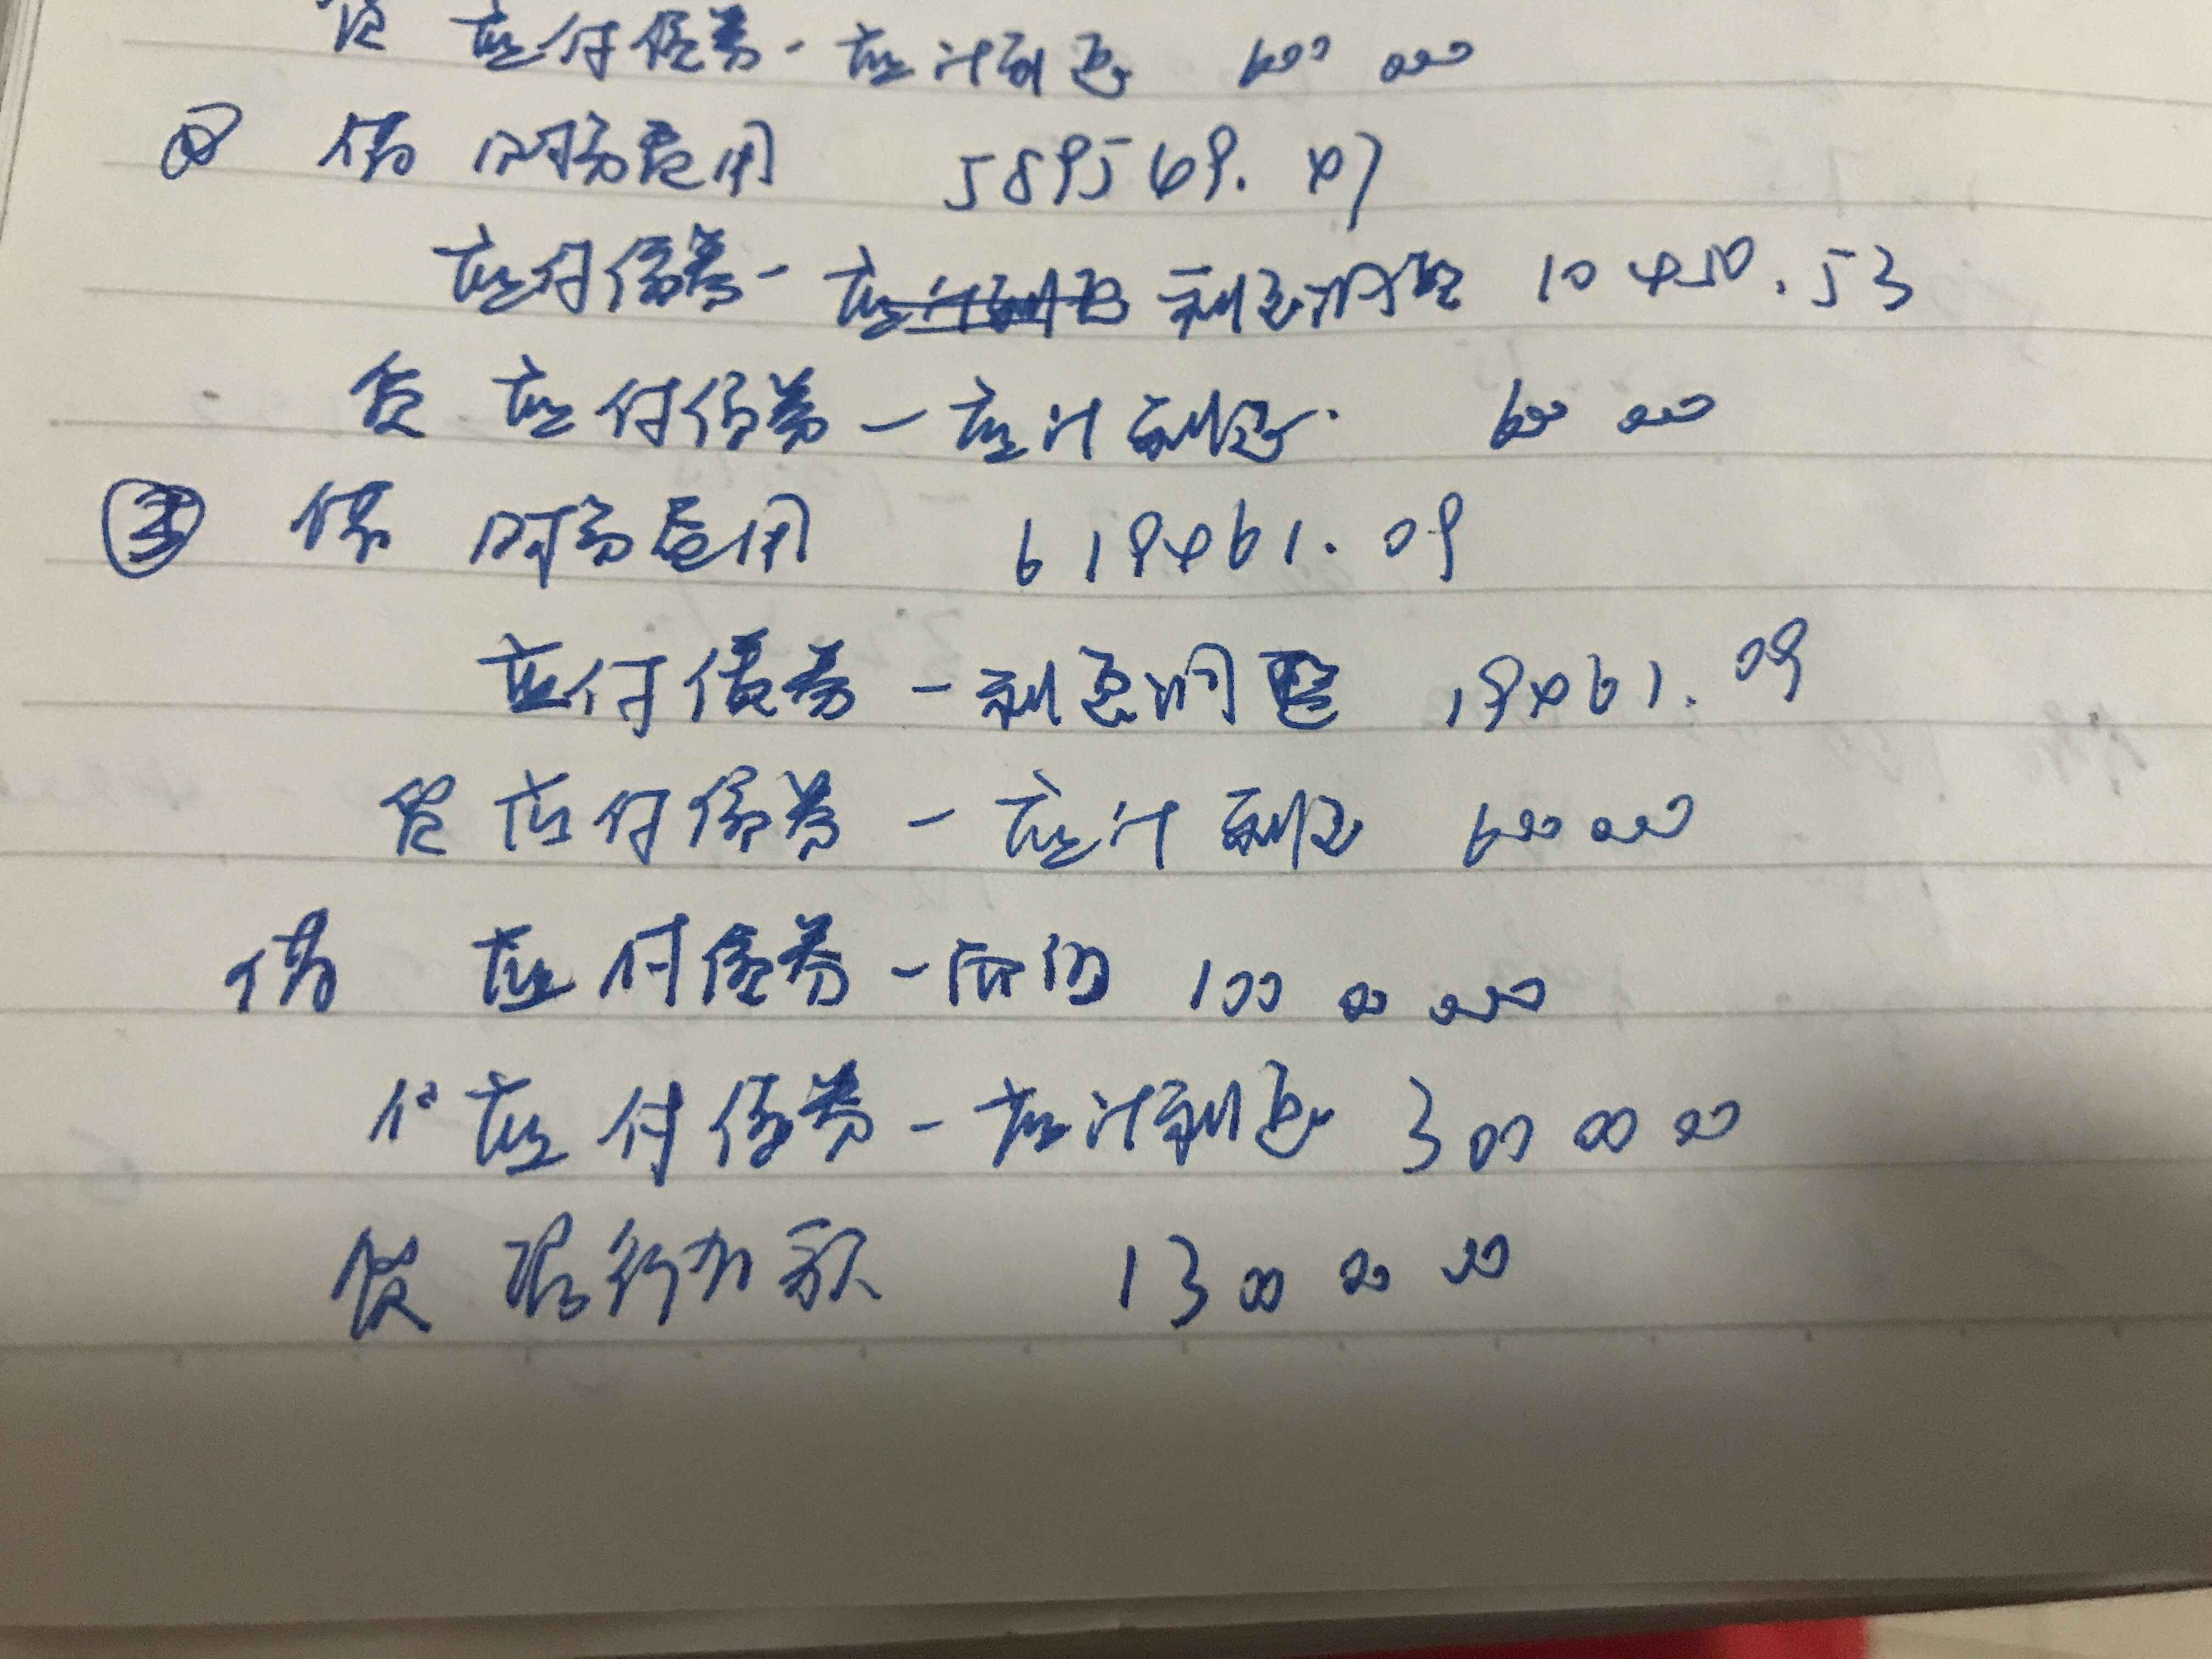 贷 应付债券-应计利息 600 000
② 借 财务费用 589569.47
应付债券-利息调整 10450.53
贷 应付债券-应计利息 600 000
③ 借 财务费用 619461.09
应付债券-利息调整 19461.09
贷 应付债券-应计利息 600 000
借 应付债券-面值 10000000
应付债券-应计利息 3000000
贷 银行存款 13000000